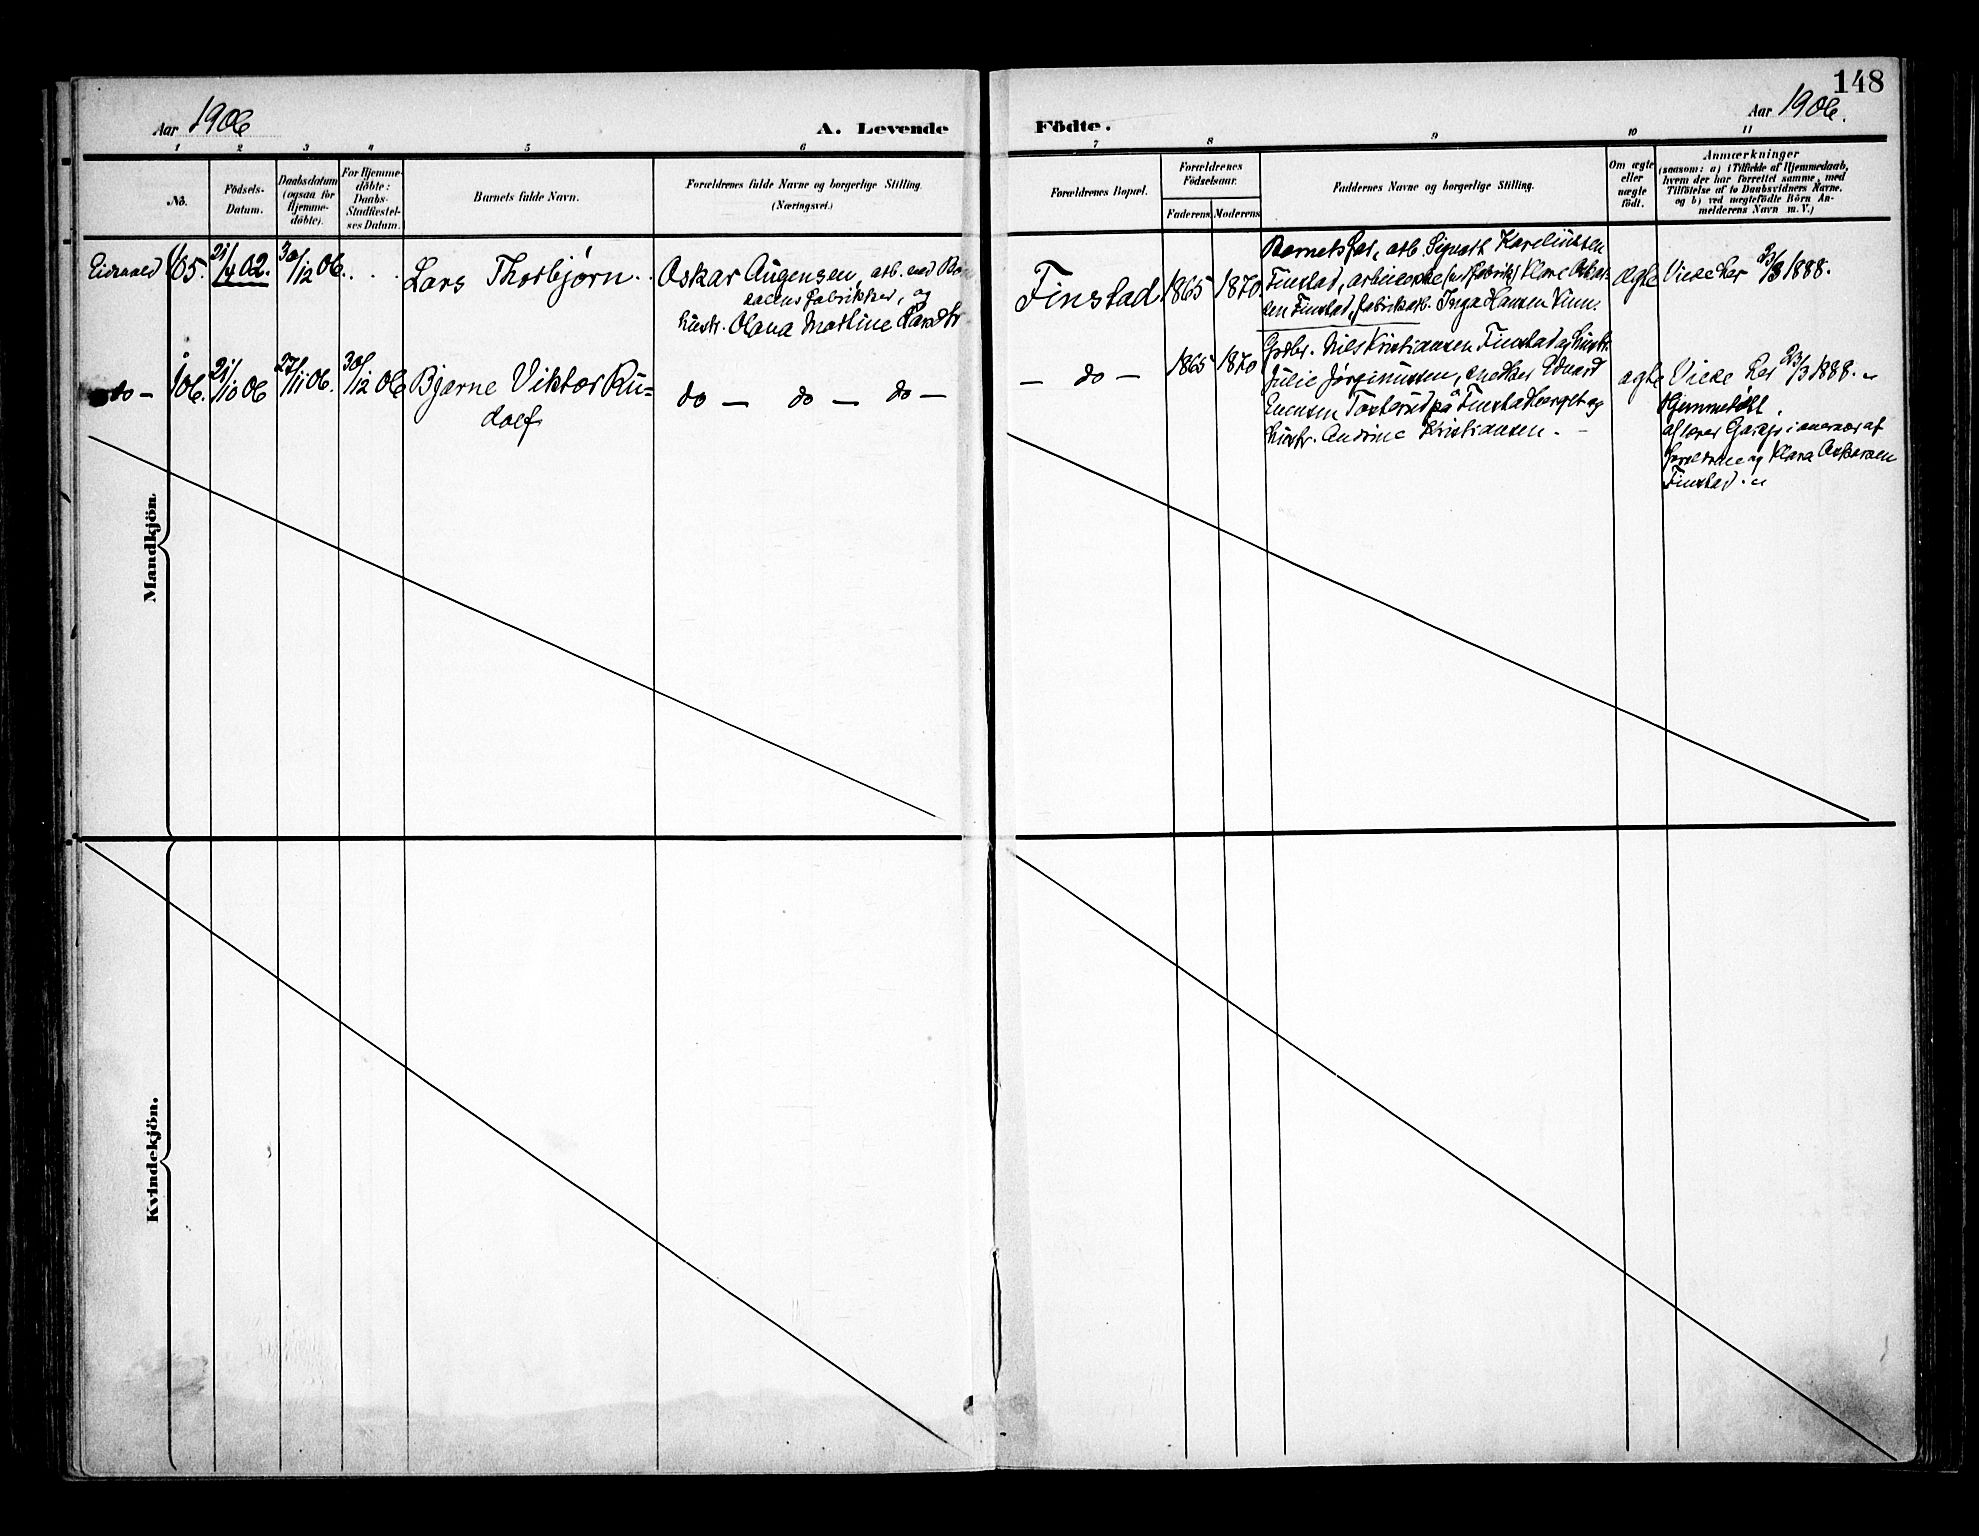 148
Aar 1906
A. Levende
Födte.
Aar 1906.
1 2 3 4 5 6 7 8 9 10 11
No.
Födsels-
Datum.
Daabsdatum
(ogsaa for
Hjemme-
döbte).
For Hjemme-
döbte:
Daabs-
Stadfæstel-
ses Datum.
Barnets fulde Navn.
Forældrenes fulde Navne og borgerlige Stilling.
(Næringsvei.)
Forældrenes Bopæl.
Forældrenes
Födselsaar.
Faderens
Moderens
Faddernes Navne og borgerlige Stilling.
Om ægte
eller
uægte
födt.
Anmærkninger
(saasom: a) i Tilfælde af Hjemmedaab,
hvem der har forrettet samme, med
Tilföielse af to Daabsvidners Navne,
og b) ved uægtefödte Börn An-
melderens Navn m. V.)
Mandkjön.
Eidsvold 105. 21/4 02. 30/12 06.
Lars Thorbjørn.
Oskar Augensen, arb. ved
fabrikker, og
hustr. Olava Martine
Finstad
1865 1870
Barnets far, arb. Sigvart Karelinssen
Finstad, Klara
sen Finstad, fabrikarb. Inga Hansen
ægte
Viede her 23/3 1888.
do — 106. 21/10 06 27/11 06. 30/12 06
Bjarne Viktor Ru-
dolf
do — do — do —
— do —
1865 1870
Grdbr. Nils Kristiansen Finstad og hustr.
Julie Jørginussen, snedker Edvard
Evensen på Finstadberget og
hustr. Andrine Kristiansen.
ægte
Viede her 23/3 1888.
Hjemmedøbt
af i nærvær af
forældrene og Klara Oskarsen
Finstad.
Kvindekjön.